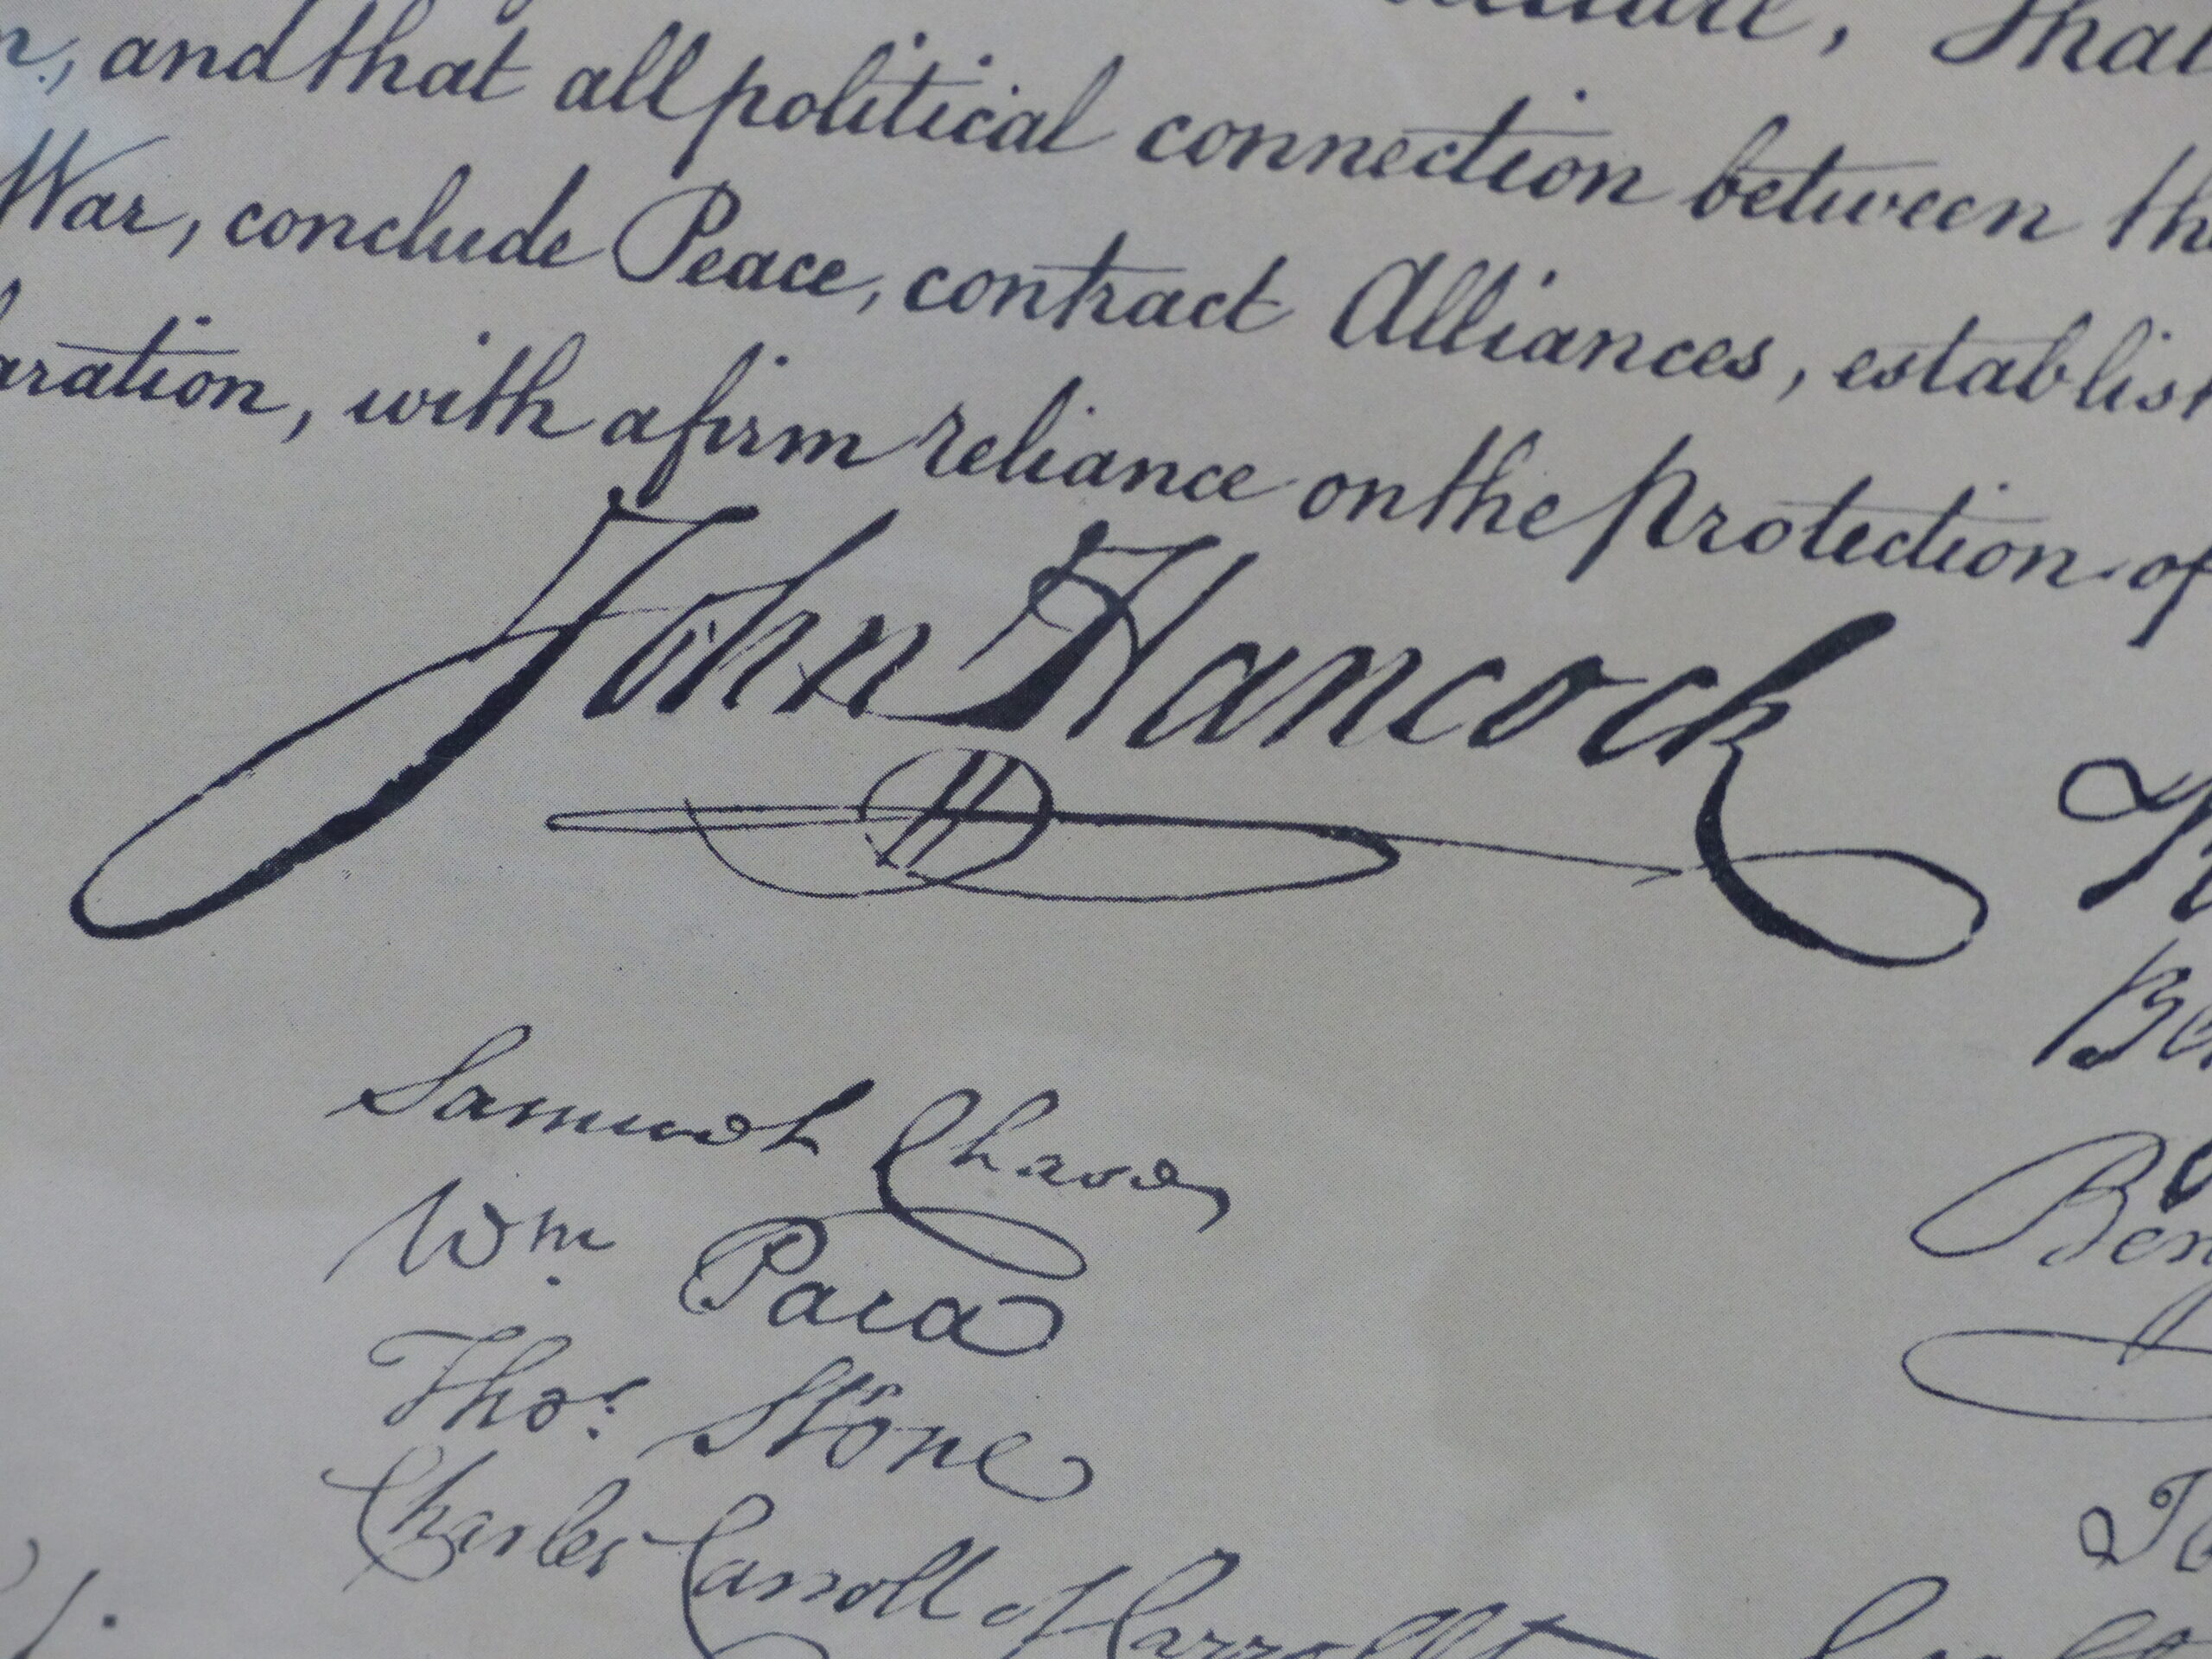 and that all political connection between
War, conclude Peace, contract Alliances, establish
with a firm reliance on the protection of
John Hancock
Samuel Chase
Wm. Paca
Thos. Stone
Charles Carroll of